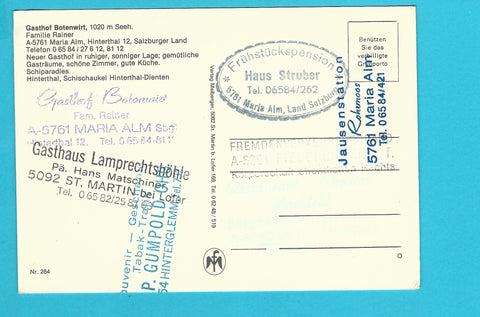 Gasthof Botenwirt, 1020 m Seeh.
Familie Rainer
A-5761 Maria Alm, Hinterthal 12, Salzburger Land
Telefon 0 65 84 / 27 6 12, 81 12
Neuer Gasthof in ruhiger, sonniger Lage; gemütliche
Gasträume, schöne Zimmer, gute Küche.
Schiparadies
Hinterthal, Schischaukel Hinterthal-Dienten
Gasthof Botenwirt
Fam. Rainer
A-5761 MARIA ALM Sbg
Hinterthal 12. Tel. 0 65 84-81 1
Gasthaus Lamprechtshöhle
Pä. Hans Matschiner
5092 ST. MARTIN bei Lofer
Tel. 0 65 82/25
Souvenir – Geschenke
Tabak-Trafik
P. GUMPOLD
54 HINTERGLEMM
Nr. 284
Frühstückspension
Haus Struber
Tel. 06584/262
5761 Maria Alm, Land Salzburg
Benützen
Sie das
verbilligte
Grußporto
Jausenstation
Rohrmoos
5761 Maria Alm
Tel. 0 65 84/421
FREMDENVERKEHRS
Körperschaft öffentlichen Rechts